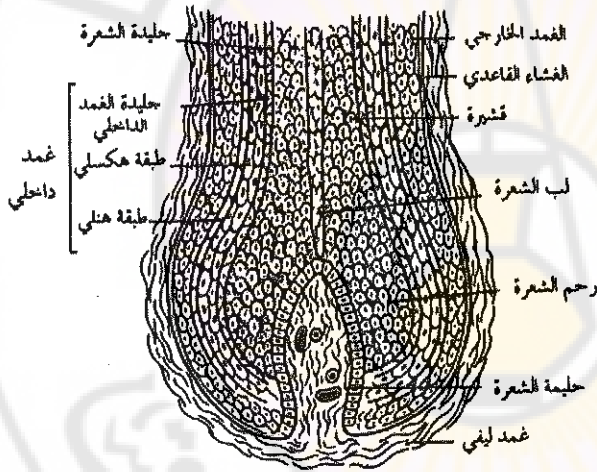 الغمد الخارجي
الغشاء القاعدي
قشيرة
لب الشعرة
رحم الشعرة
حليمة الشعرة
غمد ليفي
جليدة الشعرة
جليدة الغمد
الداخلي
طبقة هكسلي
طبقة هنلي
غمد
داخلي